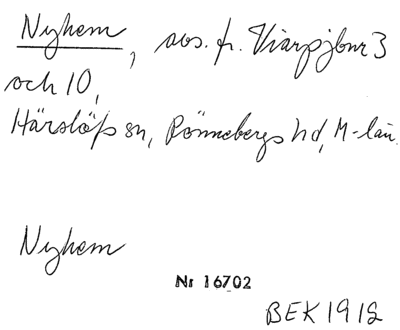 Nyhem, avs. fr. Hiarpsjbnr 3
och 10,
Härslöfs sn, Rönnebergs hd, M-län.
Nyhem
Nr 16702
BEK 1918